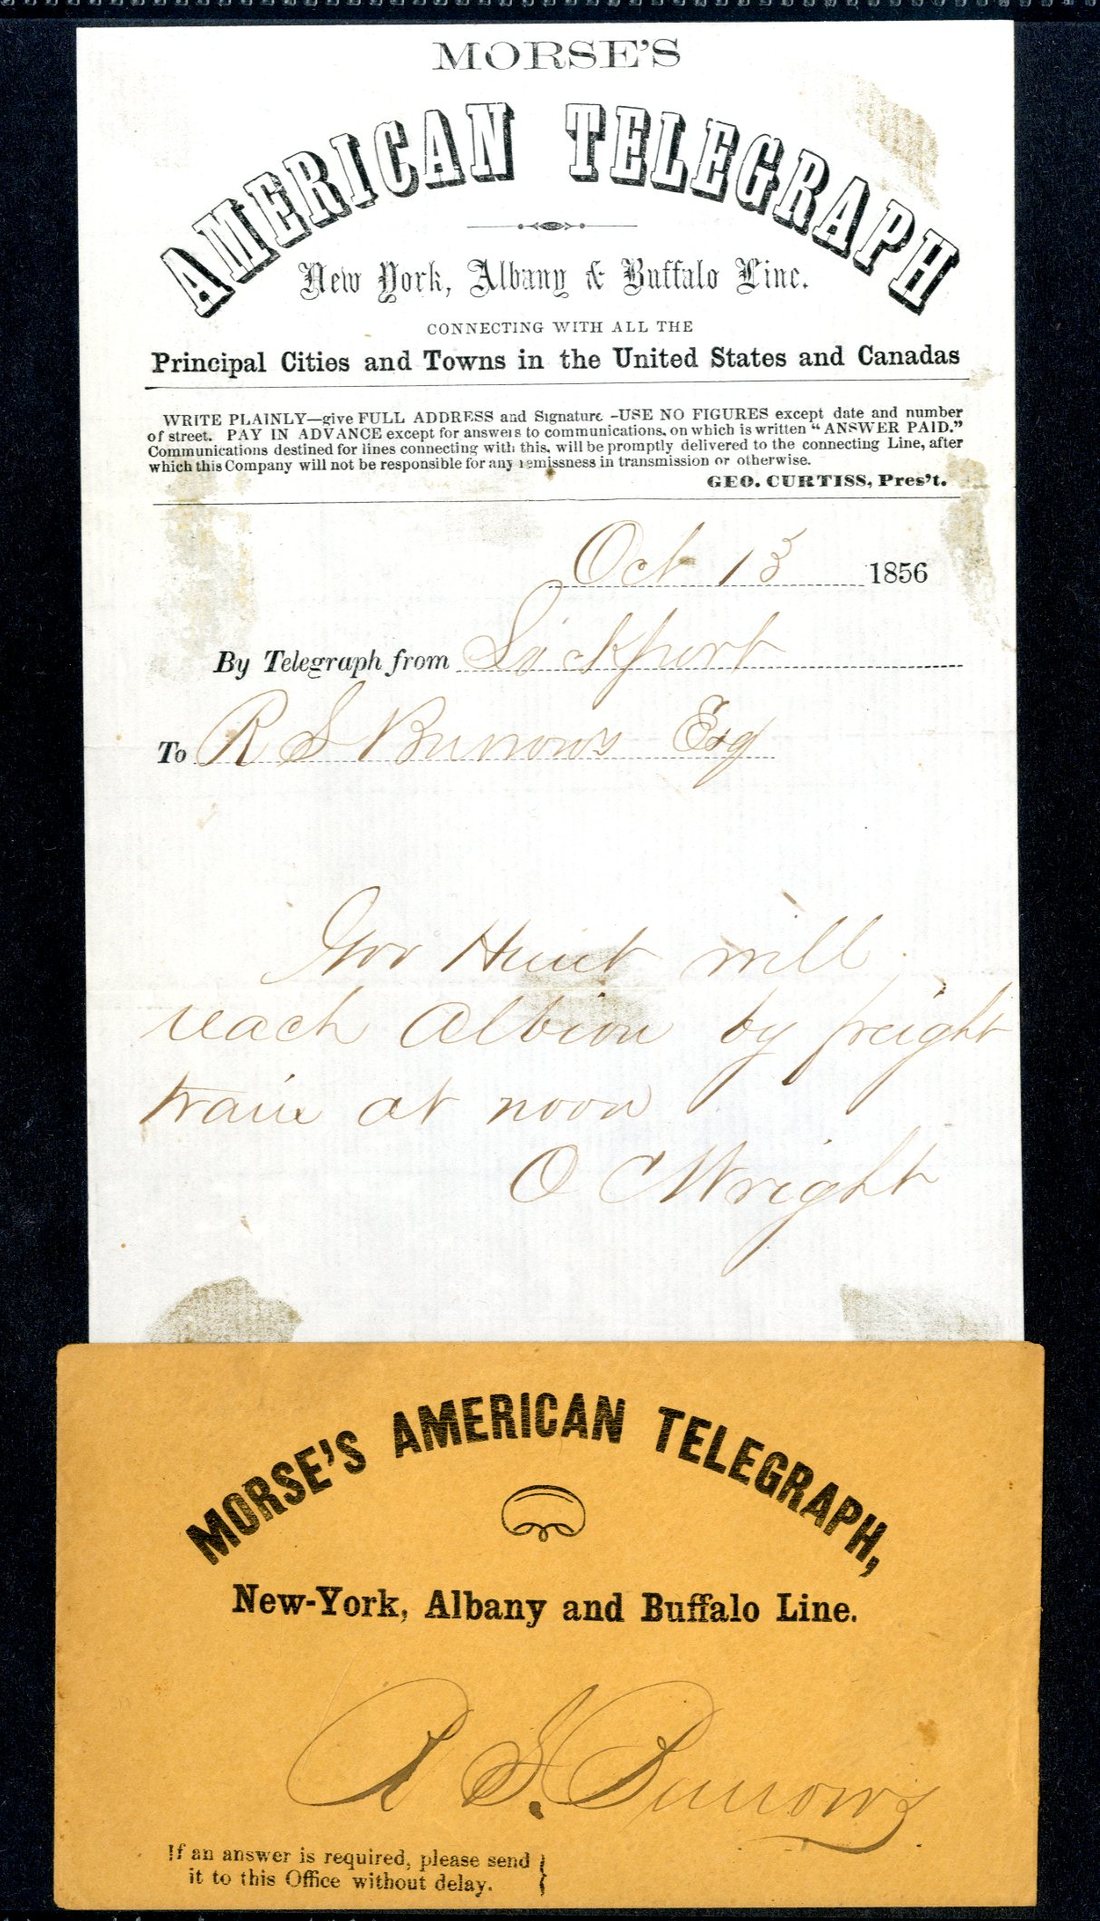 MORSE'S
AMERICAN TELEGRAPH
New York, Albany & Buffalo Line.
CONNECTING WITH ALL THE
Principal Cities and Towns in the United States and Canadas
WRITE PLAINLY—give FULL ADDRESS and Signature -USE NO FIGURES except date and number
of street. PAY IN ADVANCE except for answers to communications, on which is written "ANSWER PAID."
Communications destined for lines connecting with this, will be promptly delivered to the connecting Line, after
which this Company will not be responsible for any remissness in transmission or otherwise.
GEO. CURTISS, Pres't.
Oct 13 1856
By Telegraph from Lockport
To R S Burrows Esq
Gov Hunt will
reach Albion by freight
train at noon
O C Wright
MORSE'S AMERICAN TELEGRAPH,
New-York, Albany and Buffalo Line.
R S. Burrows
If an answer is required, please send
it to this Office without delay.